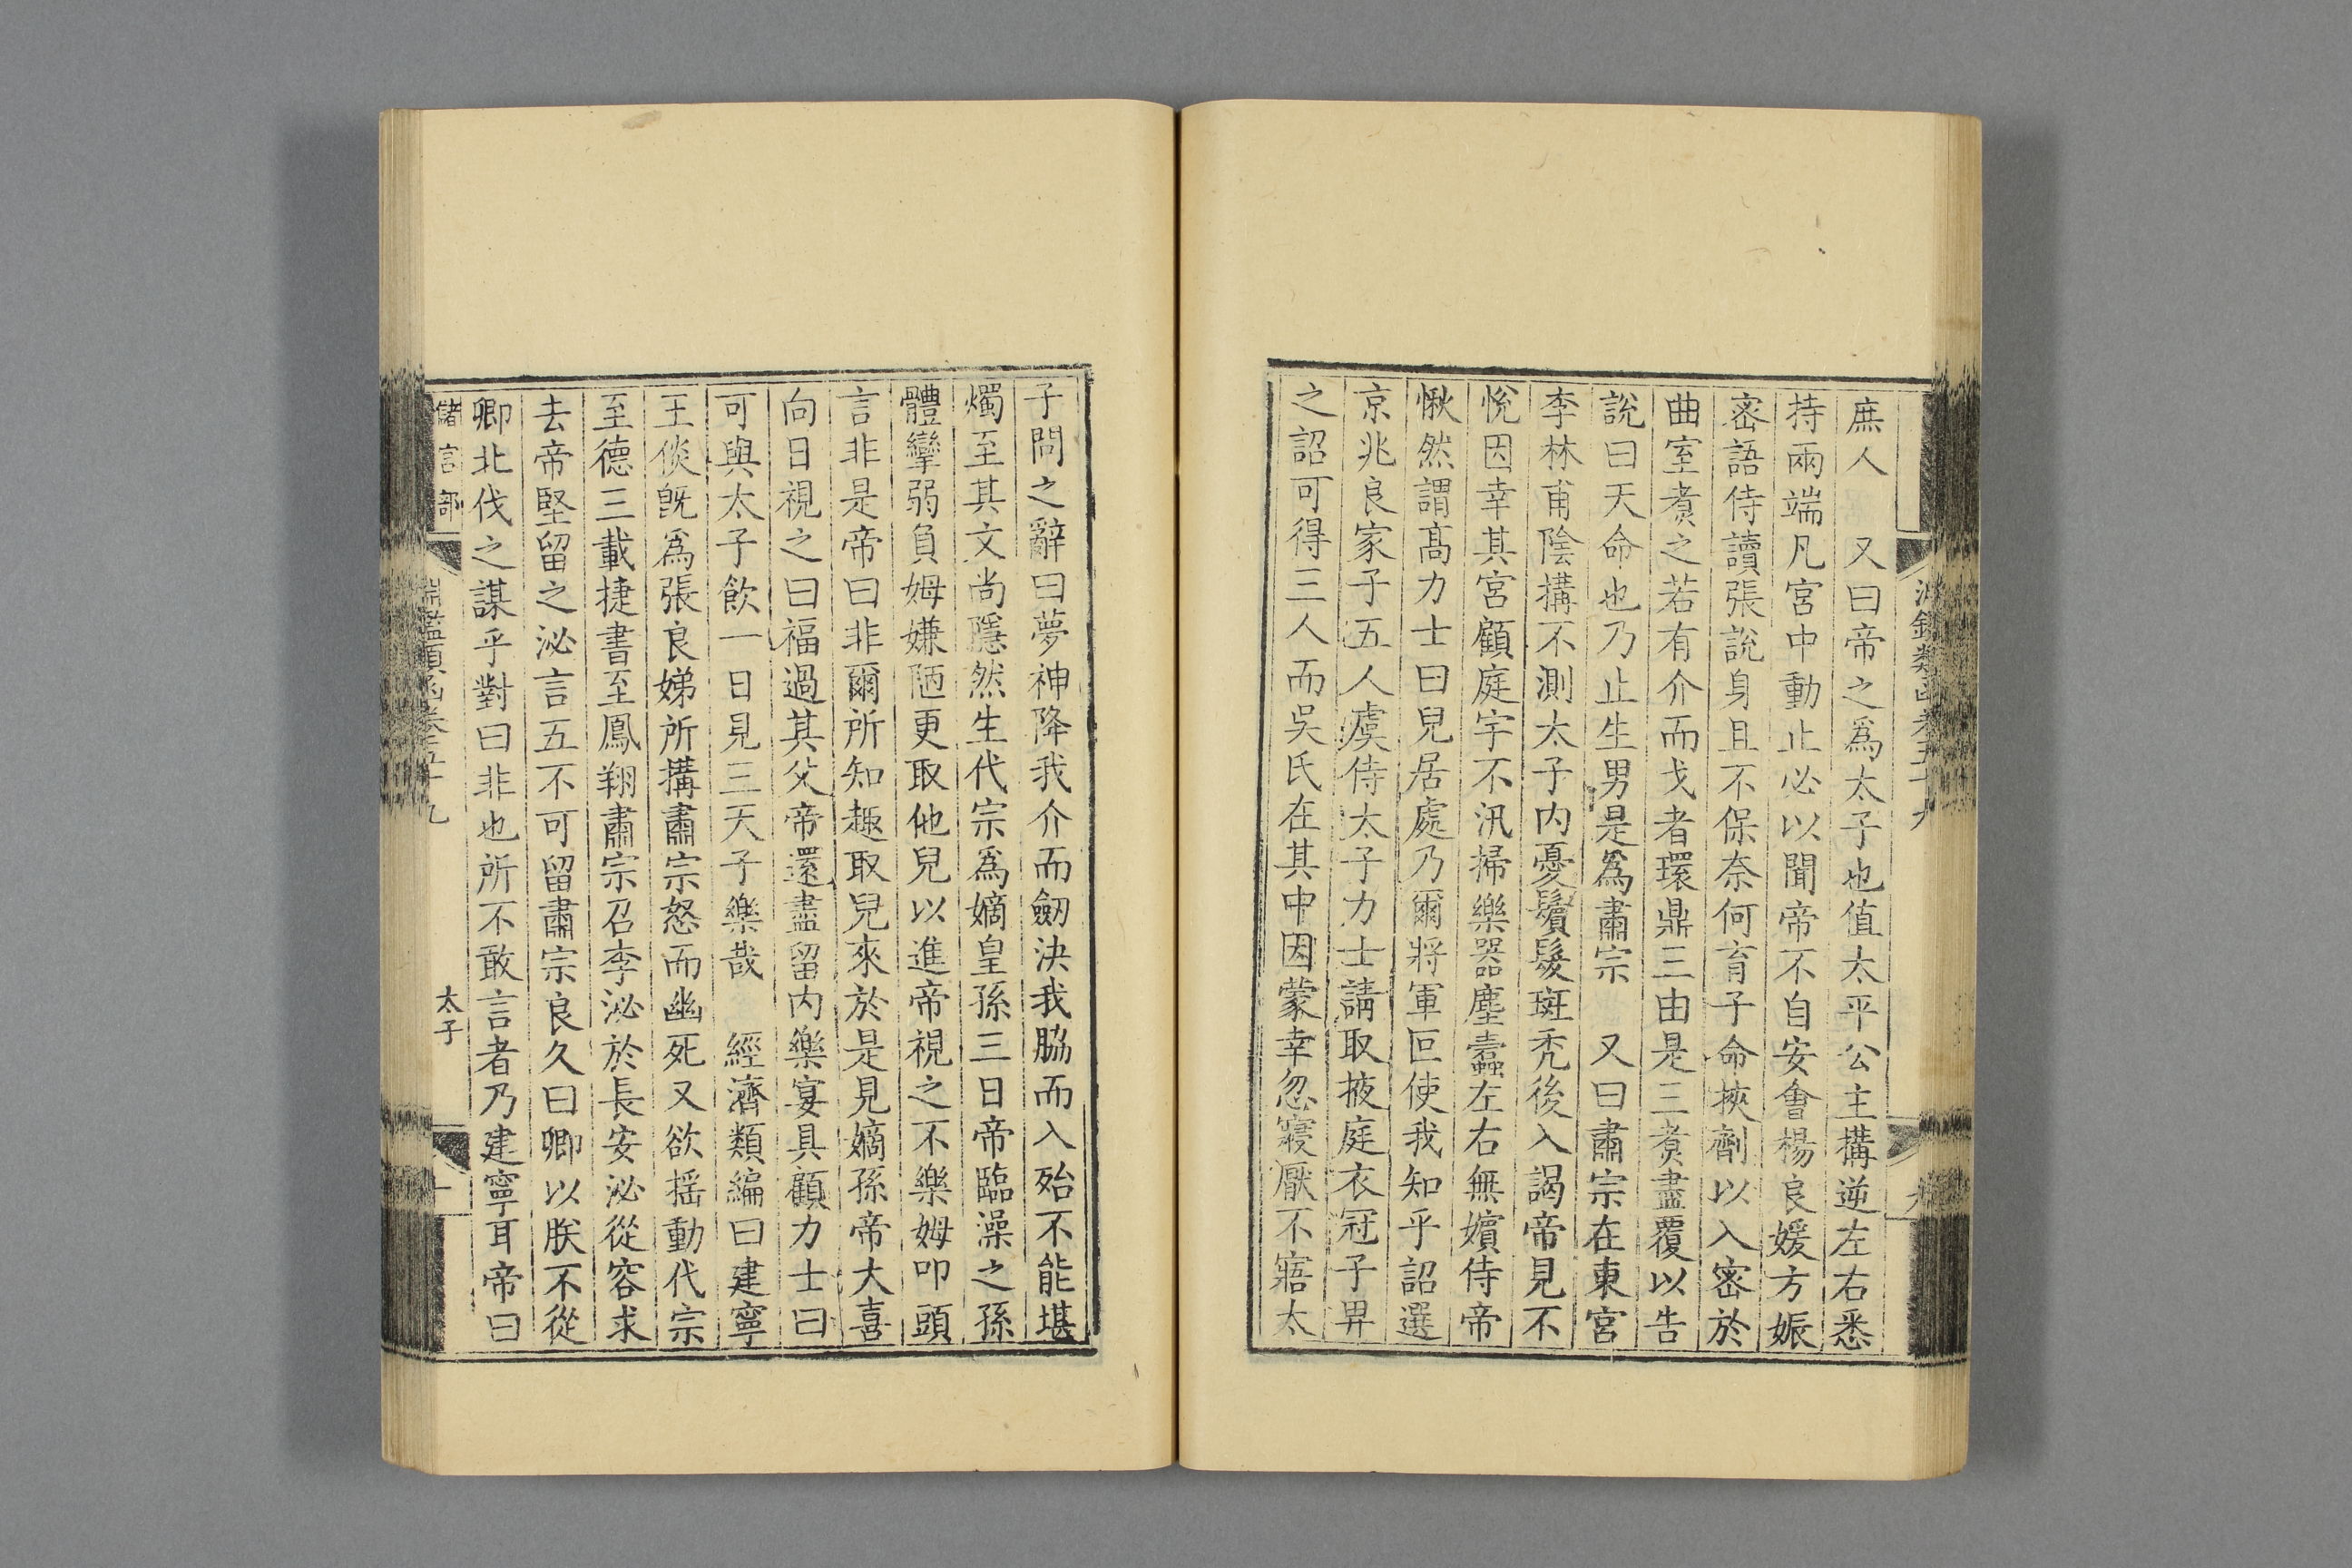 庶人　又曰帝之爲太子也值太平公主搆逆左右悉
持兩端凡宮中動止必以聞帝不自安會楊良媛方娠
宻語侍讀張說身且不保奈何育子命挾劑以入宻於
曲室煑之若有介而戈者環鼎三由是三煑盡覆以告
說曰天命也乃止生男是爲肅宗　又曰肅宗在東宮
李林甫陰搆不測太子内憂鬢髮斑禿後入謁帝見不
悅因幸其宮顧庭宇不汛掃樂器塵蠹左右無嬪侍帝
愀然謂髙力士曰兒居處乃爾將軍叵使我知乎詔選
京兆良家子五人虞侍太子力士請取掖庭衣冠子畀
之詔可得三人而吳氏在其中因蒙幸忽寢厭不寤太
子問之辭曰夢神降我介而劒決我脇而入殆不能堪
燭至其文尚隱然生代宗爲嫡皇孫三日帝臨澡之孫
體攣弱負姆嫌陋更取他兒以進帝視之不樂姆叩頭
言非是帝曰非爾所知趣取兒來於是見嫡孫帝大喜
向日視之曰福過其父帝還盡留内樂宴具顧力士曰
可與太子飲一日見三天子樂哉　經濟類編曰建寧
王倓旣爲張良娣所搆肅宗怒而幽死又欲揺動代宗
至德三載捷書至鳳翔肅宗召李泌於長安泌從容求
去帝堅留之泌言五不可留肅宗良久曰卿以朕不從
卿北伐之謀乎對曰非也所不敢言者乃建寧耳帝曰
儲宫部
淵鑑類函卷五十九
太子